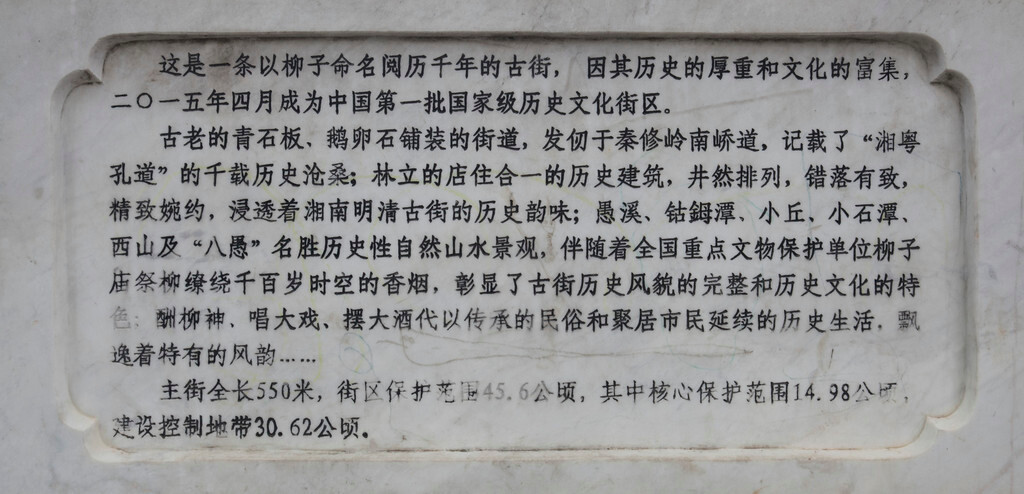 这是一条以柳子命名阅历千年的古街， 因其历史的厚重和文化的富集，
二〇一五年四月成为中国第一批国家级历史文化街区。
古老的青石板、鹅卵石铺装的街道，发仞于秦修岭南峤道，记载了“湘粤
孔道”的千载历史沧桑；林立的店住合一的历史建筑，井然排列，错落有致，
精致婉约，浸透着湘南明清古街的历史韵味；愚溪、钴鉧潭、小丘、小石潭、
西山及“八愚”名胜历史性自然山水景观，伴随着全国重点文物保护单位柳子
庙祭柳缭绕千百岁时空的香烟，彰显了古街历史风貌的完整和历史文化的特
色；酬柳神、唱大戏、摆大酒代以传承的民俗和聚居市民延续的历史生活，飘
逸着特有的风韵……
主街全长550米，街区保护范围45.6公顷，其中核心保护范围14.98公顷，
建设控制地带30.62公顷。